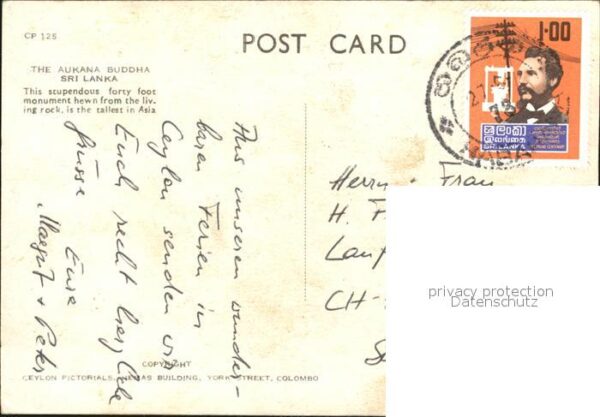 CP 125
POST CARD
THE AUKANA BUDDHA
SRI LANKA
This stupendous forty foot
monument hewn from the liv-
ing rock, is the tallest in Asia
1·00
ශ්‍රී ලංකා
இலங்கை
SRI LANKA
Aus unseren wunder-
baren Ferien in
Ceylon senden wir
Euch recht herzliche
Grüsse
Eure
Margrit + Peter
Herrn + Frau
H.
CH-
privacy protection
Datenschutz
COPYRIGHT
CEYLON PICTORIALS, BUILDING, YORK STREET, COLOMBO